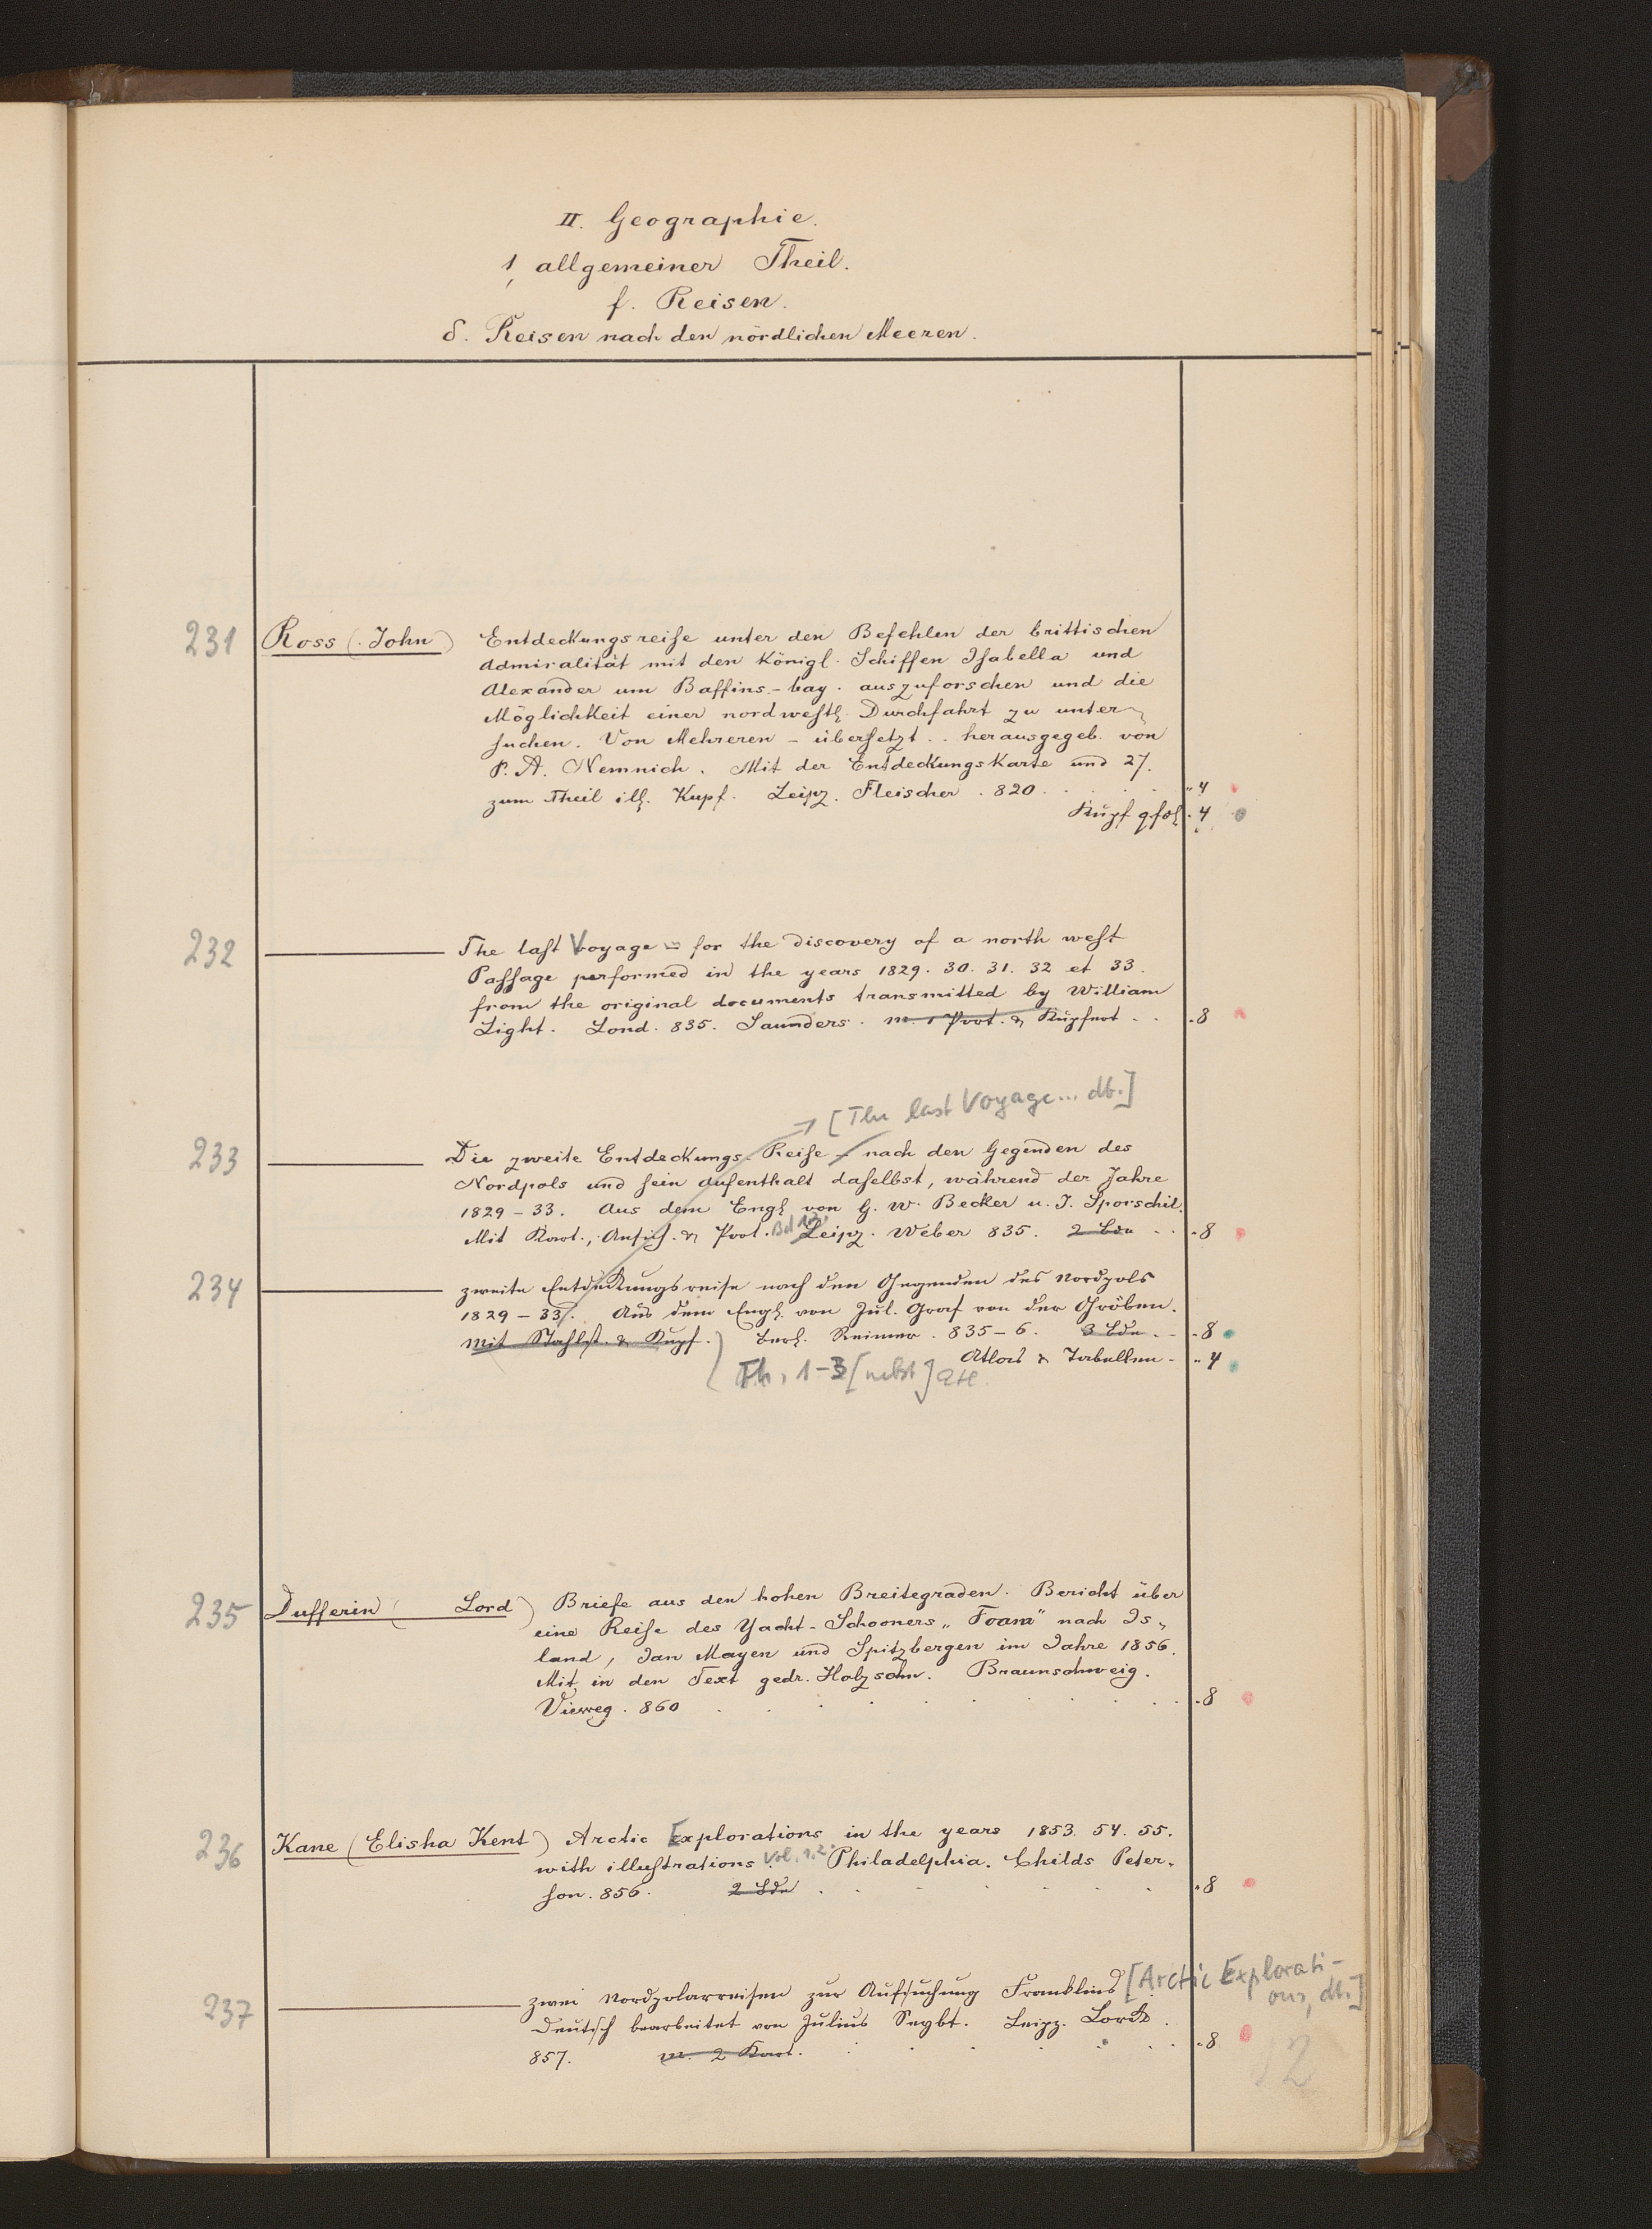 II. Geographie.
1, allgemeiner Theil.
f. Reisen.
δ. Reisen nach den nördlichen Meeren.
231 Ross (John) Entdeckungsreise unter den Befehlen der brittischen
Admiralität mit den Königl. Schiffen Isabella und
Alexander um Baffins-bay. auszuforschen und die
Möglichkeit einer nordwestl. Durchfahrt zu unter-
suchen. Von Mehreren – übersetzt .. herausgegeb. von
P. A. Nemnich. Mit der Entdeckungskarte und 27.
zum Theil ill. Kupf. Leipz. Fleischer. 820. . . . „ 4
Kupf qfol. 4
232 ——— The last Voyage = for the discovery of a north west
Passage performed in the years 1829. 30. 31. 32 et 33.
from the original documents transmitted by William
Light. Lond. 835. Saunders. m. 1 Port. & Kupfert . . „ 8
→ [The last Voyage... dt.]
233 ——— Die zweite Entdeckungs-Reise – nach den Gegenden des
Nordpols und sein Aufenthalt daselbst, während der Jahre
1829 – 33. Aus dem Engl. von G. W. Becker u. J. Sporschil.
Mit Kart., Ansich. & Port. Bd 1.2. Leipz. Weber 835. 2 Bde . . „ 8
234 ——— zweite Entdeckungsreise nach den Gegenden des Nordpols
1829 – 33. Aus dem Engl. von Jul. Graf von der Gröben.
mit Stahlst. & Kupf. Berl. Reimer. 835–6. 3 Bde. - „ 8
Atlas & Tabellen - „ 4
Th. 1-3 [nebst] Atl.
235 Dufferin ( Lord) Briefe aus den hohen Breitegraden. Bericht über
eine Reise des Yacht-Schooners „Foam" nach Is-
land, Jan Mayen und Spitzbergen im Jahre 1856.
Mit in den Text gedr. Holzschn. Braunschweig.
Vieweg. 860 . . . . . . . . . „ 8
236 Kane (Elisha Kent) Arctic Explorations in the years 1853. 54. 55.
with illustrations. Vol. 1.2. Philadelphia. Childs Peter-
son. 856. 2 Bde . . . . . . . „ 8
237 ——— zwei Nordpolarreisen zur Aufsuchung Franklins [Arctic Explorati-
ons, dt.]
Deutsch bearbeitet von Julius Seybt. Leipz. Lorck.
857. m. 2 Kart. . . . . . . „ 8
12